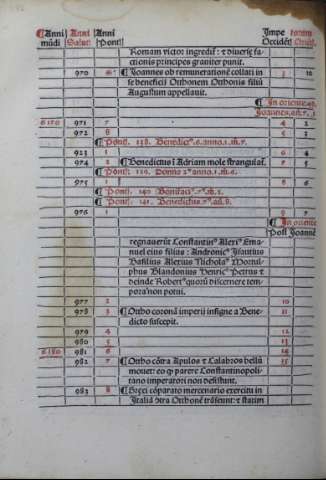 Anni mūdi Anni Salut̄ Anni Pontī Impe Occidēt̄ ratorum Oriēt̄
Romam victor ingredit̄: ⁊ diuerse fa-
ctionis principes grauiter punit.
970 6 Ioannes ob remunerationē collati in 3 10
se beneficii Othonem Othonis filiū
Augustum appellauit.
In oriente
971 7 4 2
972 8 5 3
Pont. 138. Benedict⁹.6.anno.1.m̄.6.
923 1 6 4
974 2 Benedictus ī Adriani mole strangulat̄ 7 5
Pont. 139. Donno 2⁹ anno.1.m̄.6.
975 1 8 6
Pont. 140 Bonifaci⁹.7⁹
Pont. 141. Benedictus.7⁹
976 1 9 7
In oriente
Post Joannē
regnauerūt Constantin⁹ Alexi⁹ Ema-
nuel eius filius: Andronic⁹ Isautius
Basilius Alexius
Blandonius Henric⁹ Petrus ⁊
deinde Robert⁹ quorū discernere tem
pora non potui.
977 2 10
978 3 Otho coronā imperii insigne a Bene- 11
dicto suscepit.
979 4 12
980 5 13
6180 981 6 14
982 7 Otho cōtra Apulos ⁊ Calabros bellū 15
mouet: eo ꝙ parere Constantinopoli-
tano imperatori non desistunt.
983 8 Greci cōparato mercenario exercitu in
Italiā ↄtra Othonē trāseunt: ⁊ statim